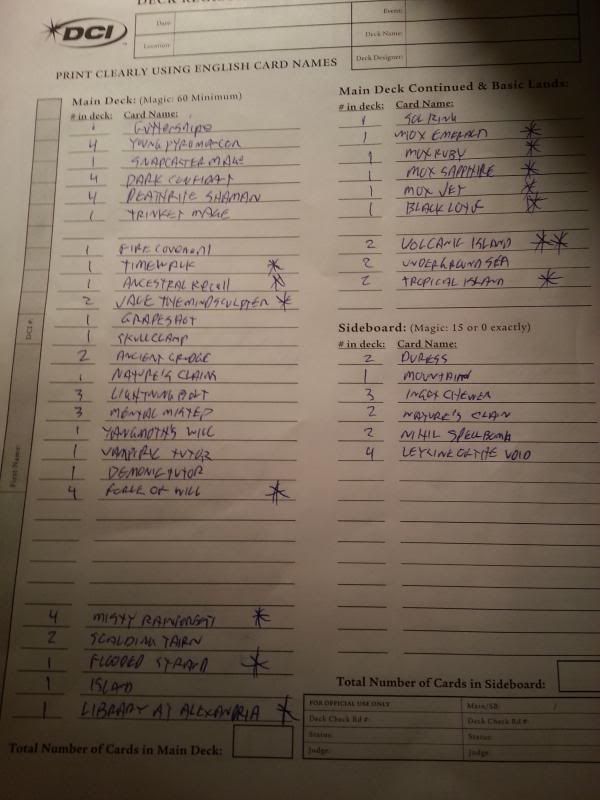 DECK REGIS
DCI
Date:
Location:
Event:
Deck Name:
Deck Designer:
PRINT CLEARLY USING ENGLISH CARD NAMES
Main Deck: (Magic: 60 Minimum)
# in deck: Card Name:
1 GUTTERSNIPE
4 YOUNG PYROMANCER
1 SNAPCASTER MAGE
4 DARK CONFIDANT
4 DEATHRITE SHAMAN
1 TRINKET MAGE
1 FIRE COVENANT
1 TIMEWALK *
1 ANCESTRAL RECALL *
2 JACE THE MIND SCULPTER *
1 GRAPESHOT
1 SKULLCLAMP
2 ANCIENT GRUDGE
1 NATURE'S CLAIM
3 LIGHTNING BOLT
3 MENTAL MISTEP
1 YAWGMOTH'S WILL
1 VAMPIRIC TUTOR
1 DEMONIC TUTOR
4 FORCE OF WILL *
4 MISTY RAINFOREST *
2 SCALDING TARN
1 FLOODED STRAND *
1 ISLAND
1 LIBRARY AT ALEXANDRIA *
Total Number of Cards in Main Deck:
DCI #:
First Name:
Main Deck Continued & Basic Lands:
# in deck: Card Name:
1 SOL RING
1 MOX EMERALD *
1 MOX RUBY *
1 MOX SAPPHIRE *
1 MOX JET *
1 BLACK LOTUS *
2 VOLCANIC ISLAND **
2 UNDERGROUND SEA
2 TROPICAL ISLAND *
Sideboard: (Magic: 15 or 0 exactly)
# in deck: Card Name:
2 DURESS
1 MOUNTAIN
3 INGOT CHEWER
2 NATURE'S CLAIM
2 NIHIL SPELLBOMB
4 LEYLINE OF THE VOID
Total Number of Cards in Sideboard:
FOR OFFICIAL USE ONLY
Main/SB: /
Deck Check Rd #:
Deck Check Rd #:
Status:
Status:
Judge:
Judge: